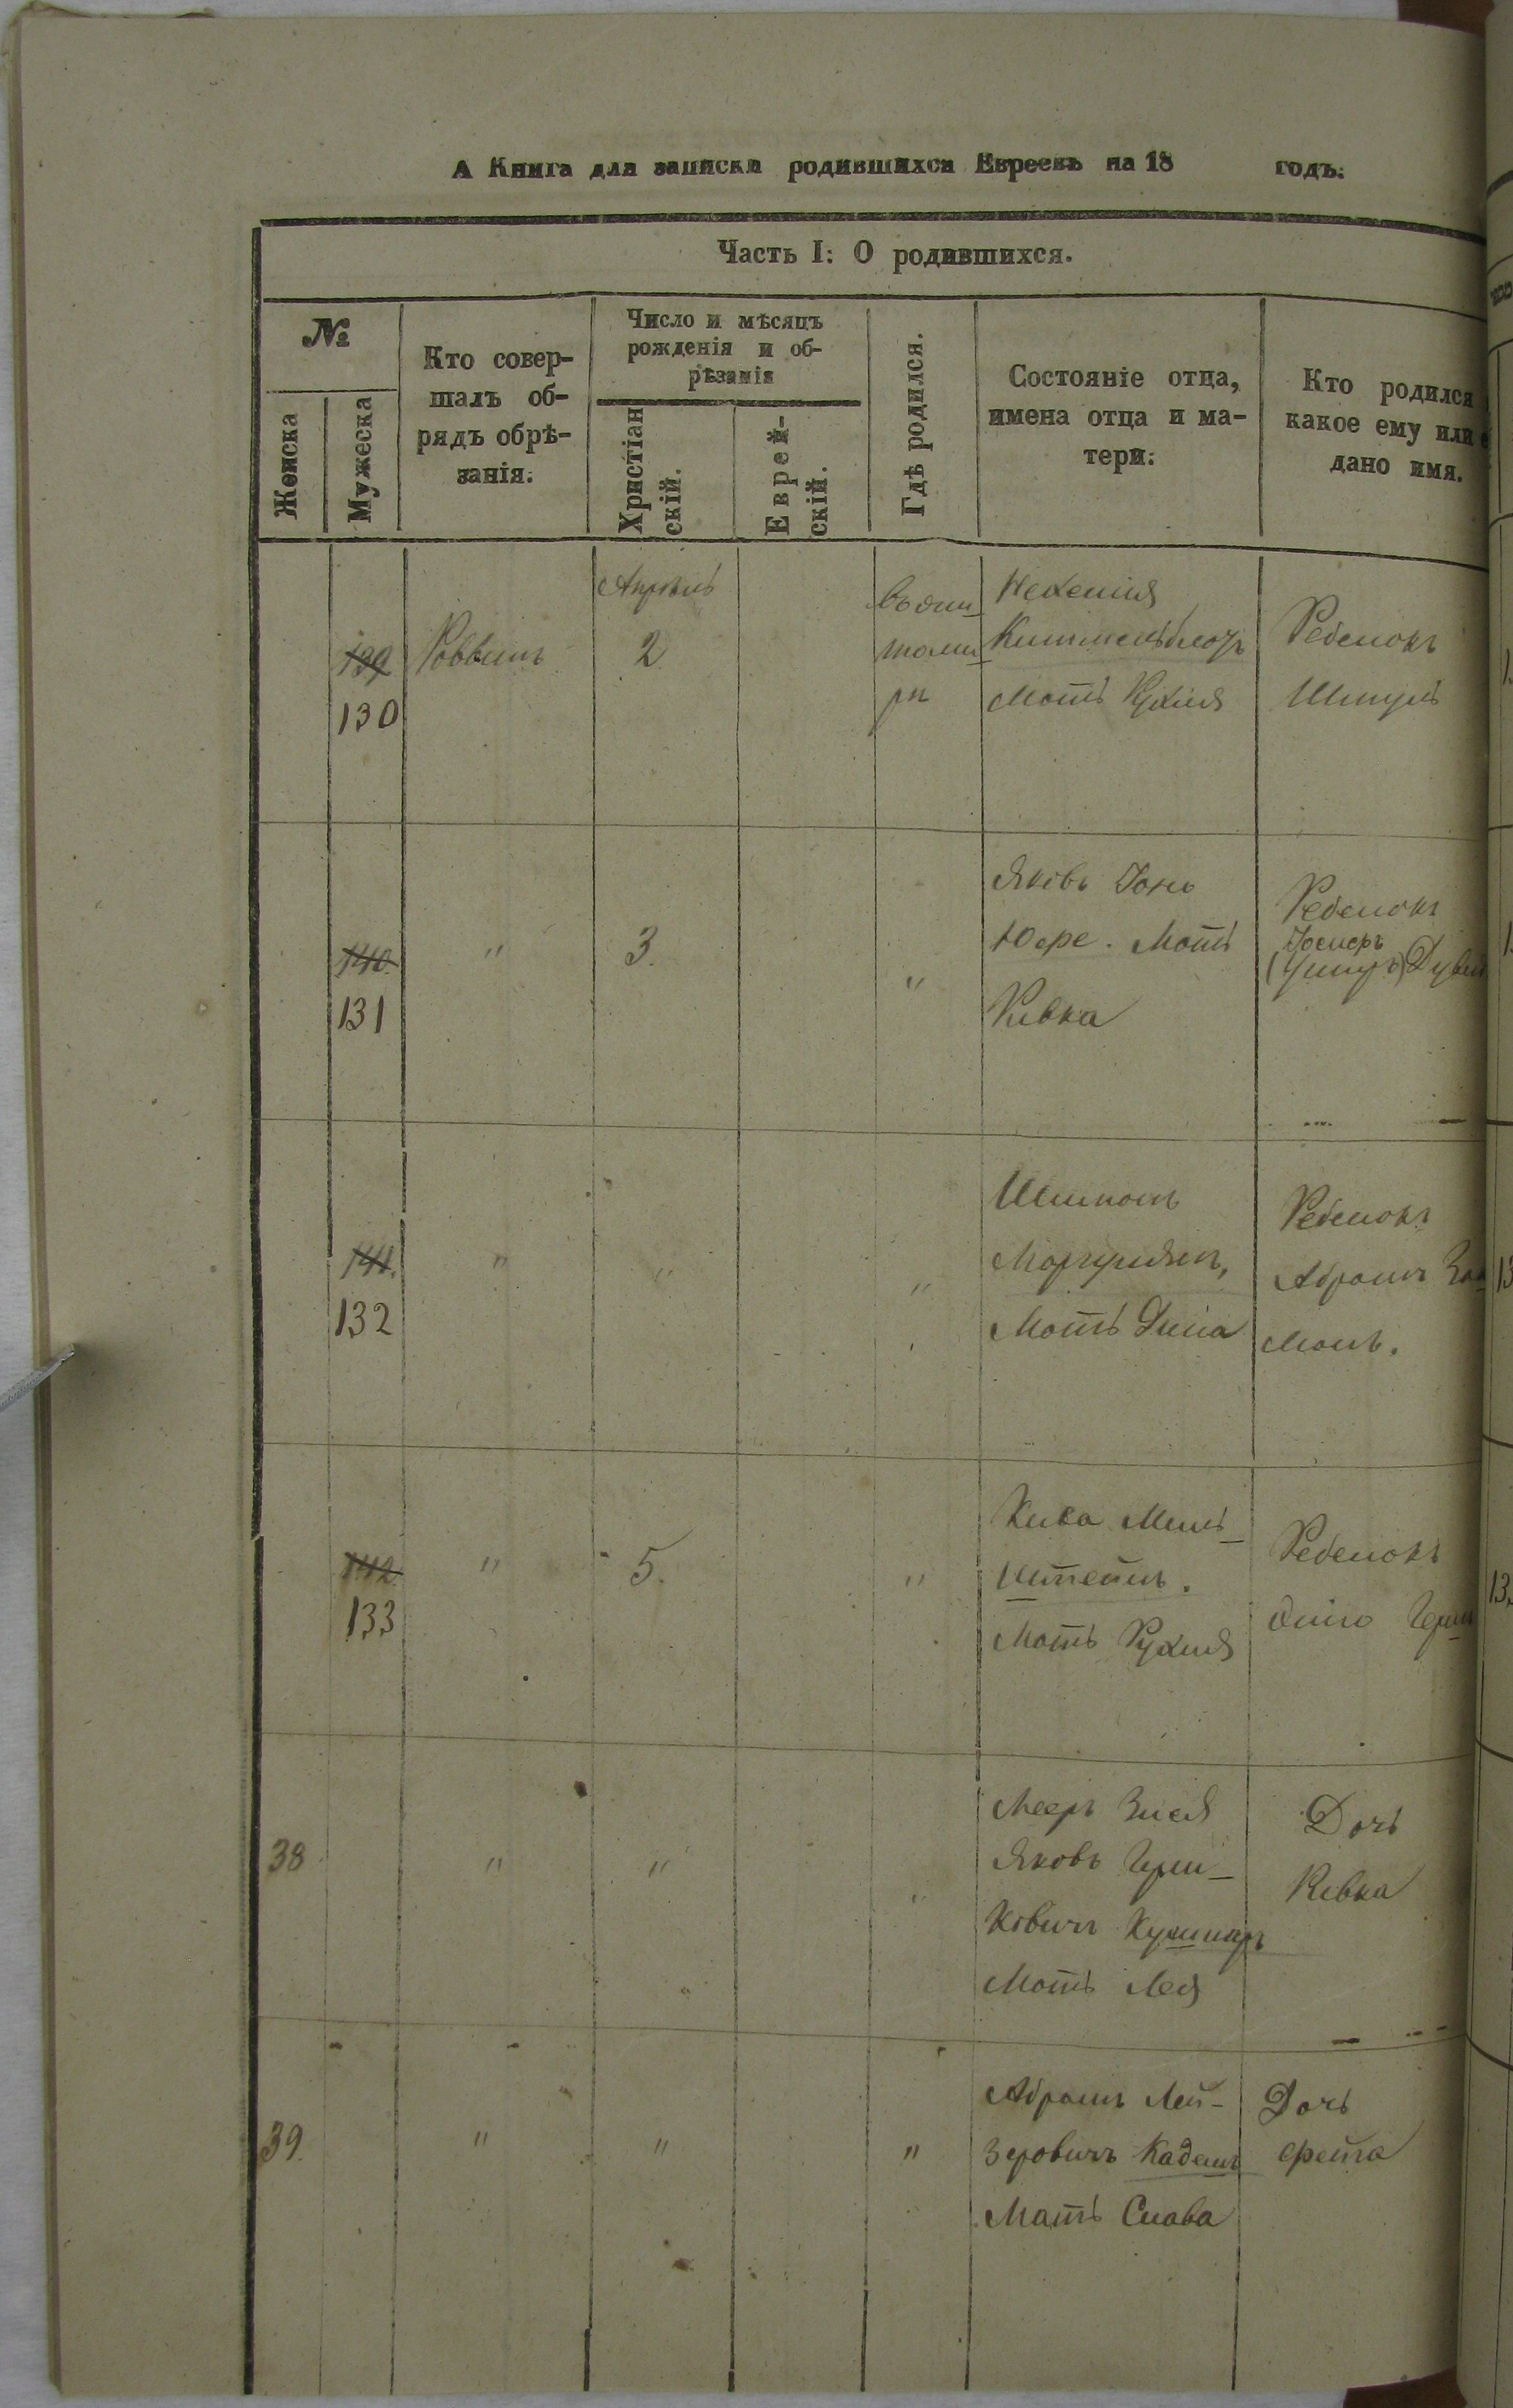 А Книга для записки родившихся Евреевъ на 18 годъ.
Часть I: О родившихся.
№
Женска
Мужеска
Кто совер-
шалъ об-
рядъ обрѣ-
занія.
Число и мѣсяцъ
рожденія и об-
рѣзанія
Христіан
скій.
Еврей-
скій.
Гдѣ родился.
Состояніе отца,
имена отца и ма-
тери.
Кто родился
какое ему или
дано имя.
139
130
Раввинъ
Апрѣль
2
въ Жи-
томи-
рѣ
Нехемія
Мать Рухля
Ребенокъ
Шмуль
140
131
"
3.
"
Яковъ
Мать
Ривка
Ребенокъ
Іосифъ
141.
132
"
"
"
Шлиома
Моргулянъ,
Мать Дина
Ребенокъ
Абрамъ
142
133
"
5.
"
Кива Миль-
штейнъ.
Мать Рухля
Ребенокъ
38
"
"
"
Мееръ Зися
Яковъ Герш-
ковичъ
Мать Лея
Дочь
Ривка
39.
"
"
"
Абрамъ Лей-
зеровичъ Каданъ
Мать Слава
Дочь
Фейга